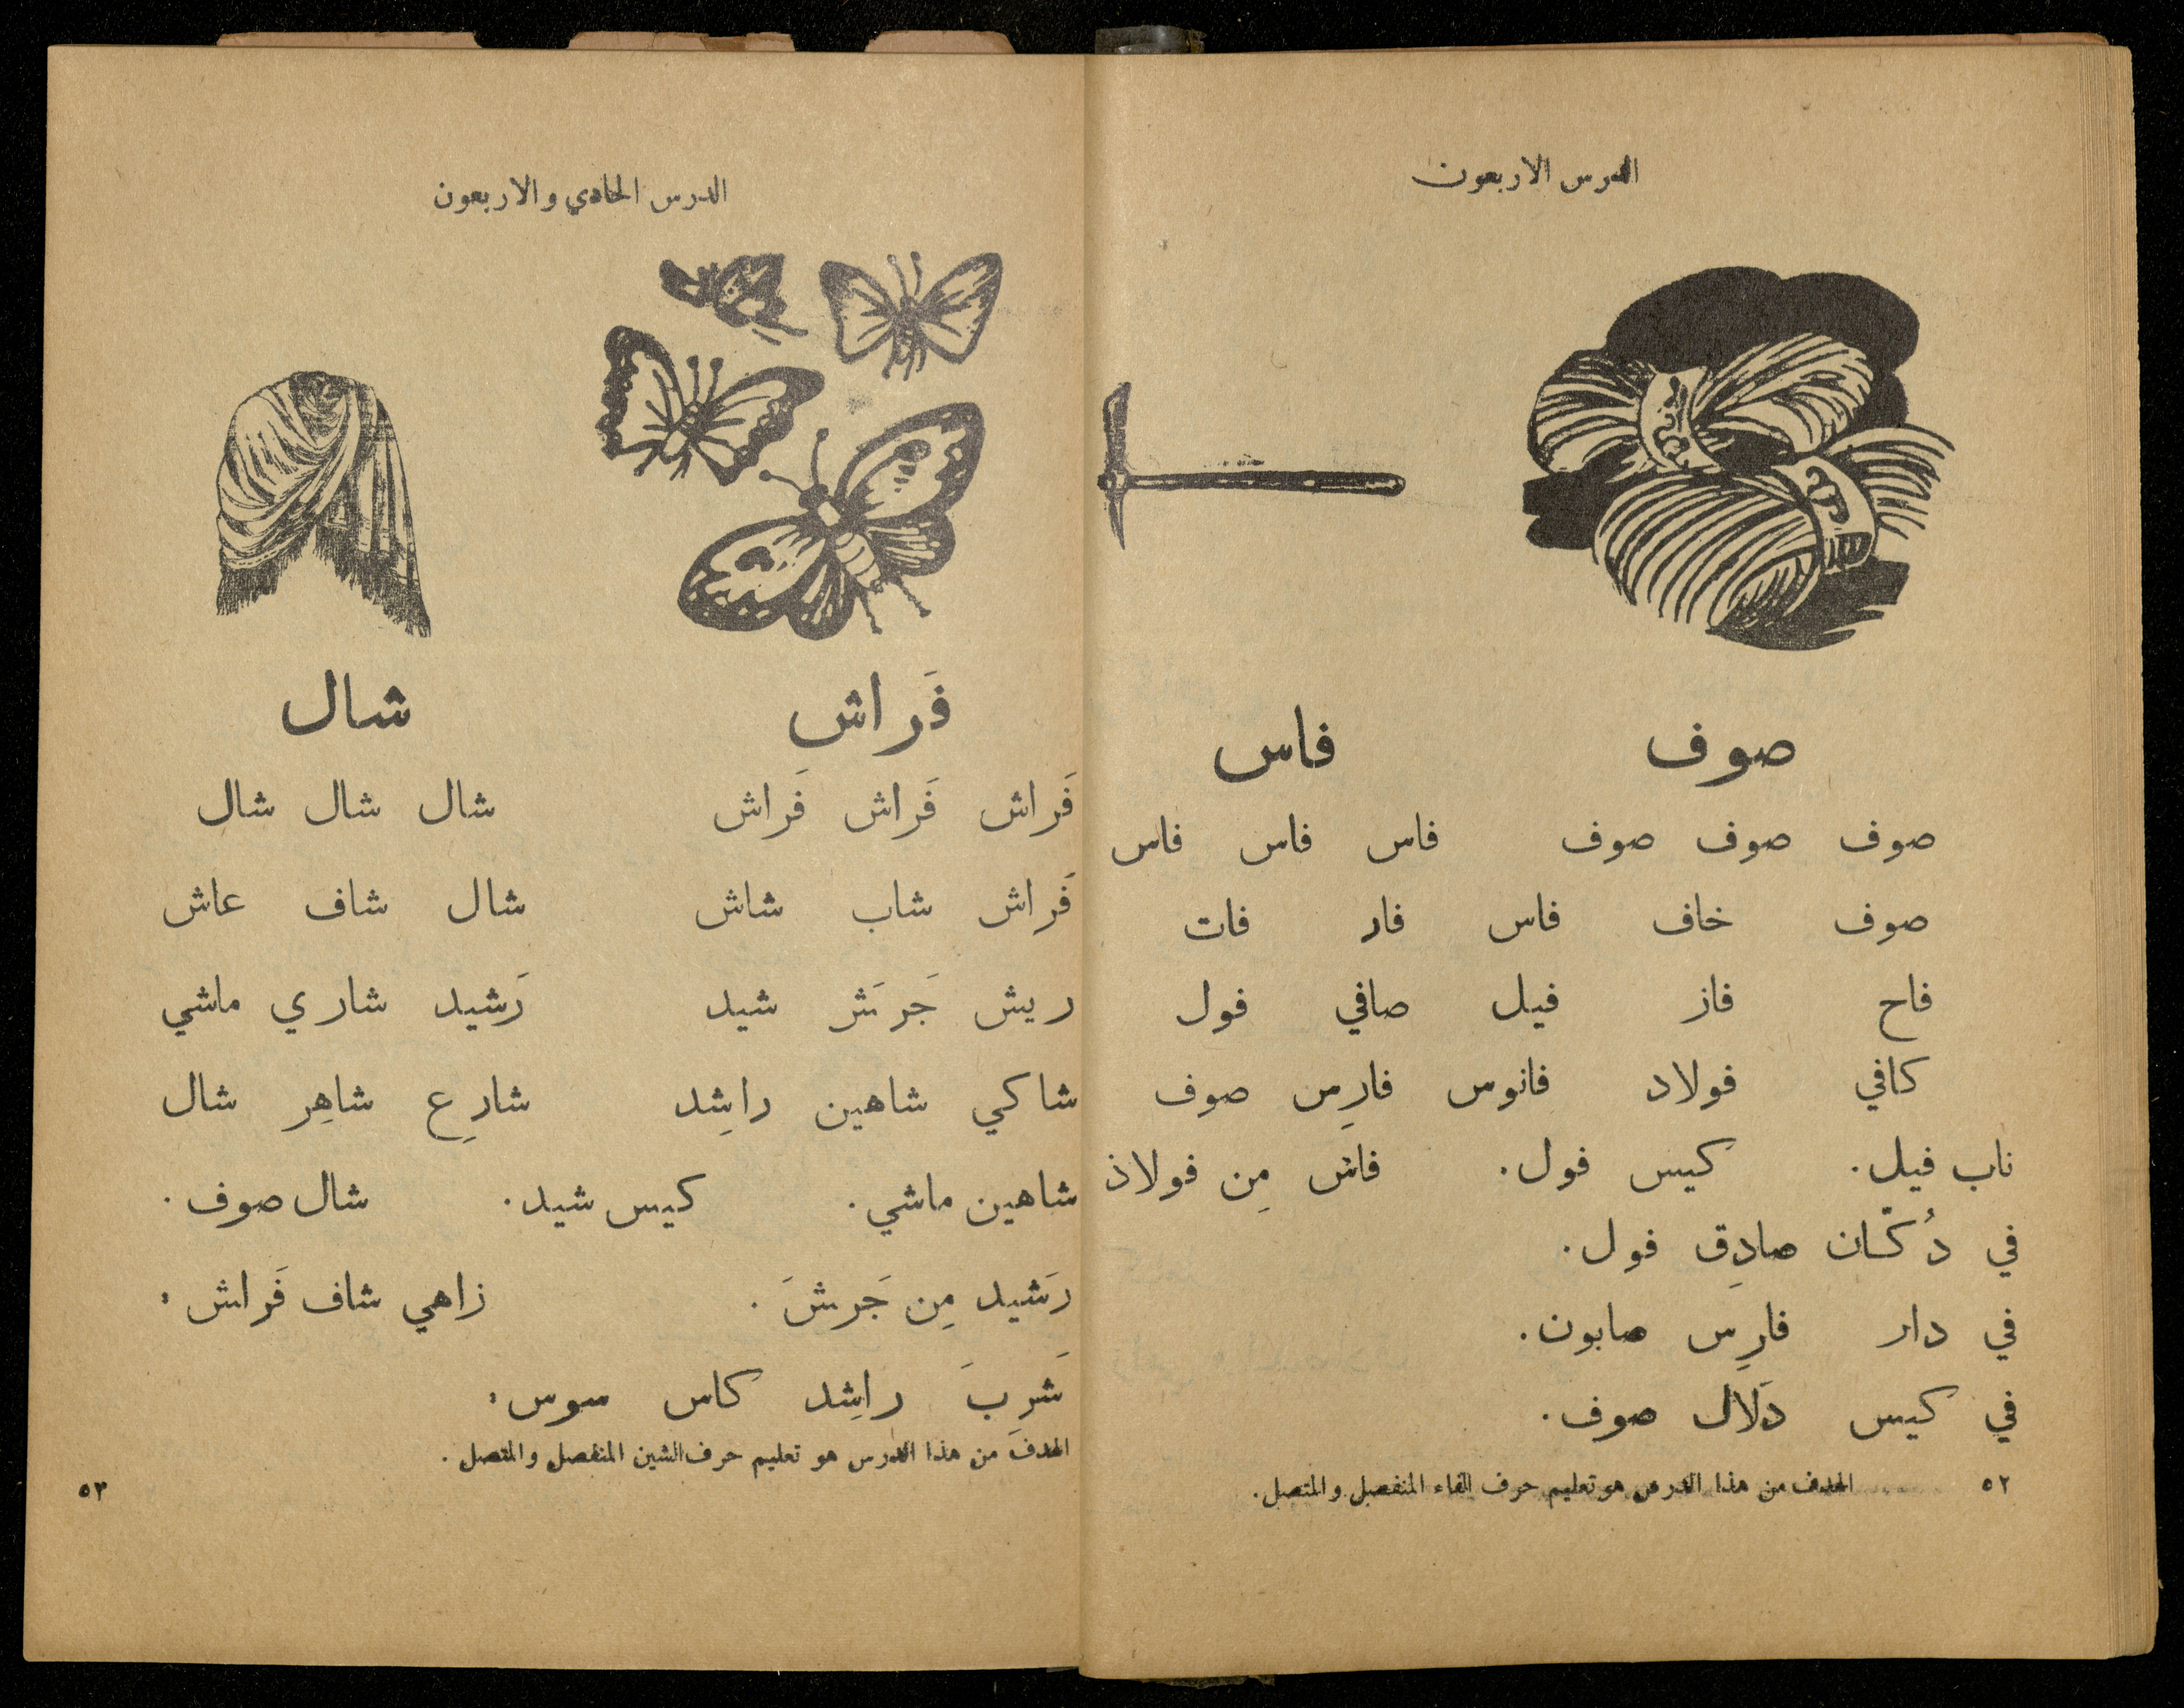 الدرس الاربعون
صوف فاس
صوف صوف صوف فاس فاس فاس
صوف خاف فاس فار فات
فاح فاز فيل صافي فول
كافي فولاد فانوس فارِس صوف
ناب فيل. كيس فول. فاس مِن فولاذ
في دُكّان صادِق فول.
في دار فارِس صابون.
في كيس دَلال صوف.
الهدف من هذا الدرس هو تعليم حرف الفاء المنفصل والمتصل.
٥٢
الدرس الحادي والاربعون
فَراش شال
فَراش فَراش فَراش شال شال شال
فَراش شاب شاش شال شاف عاش
ريش جَرَش شيد رَشيد شاري ماشي
شاكي شاهين راشِد شارِع شاهِر شال
شاهين ماشي. كيس شيد. شال صوف.
رَشيد مِن جَرَش. زاهي شاف فَراش.
شَرِبَ راشِد كاس سوس.
الهدف من هذا الدرس هو تعليم حرف الشين المنفصل والمتصل.
٥٣